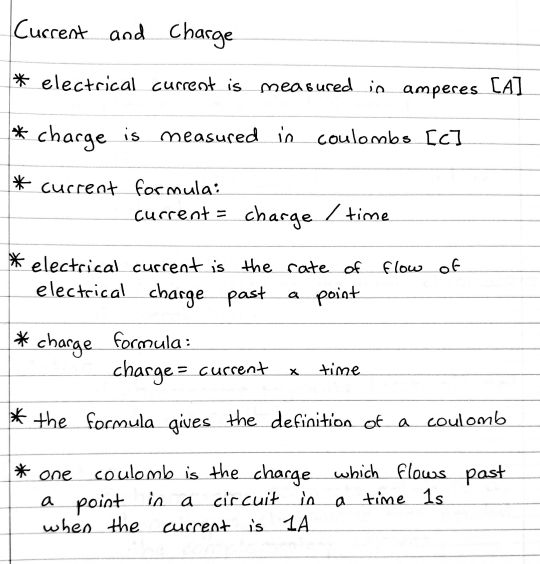 Current and Charge
* electrical current is measured in amperes [A]
* charge is measured in coulombs [C]
* current formula:
current = charge / time
* electrical current is the rate of flow of
electrical charge past a point
* charge formula:
charge = current x time
* the formula gives the definition of a coulomb
* one coulomb is the charge which flows past
a point in a circuit in a time 1s
when the current is 1A